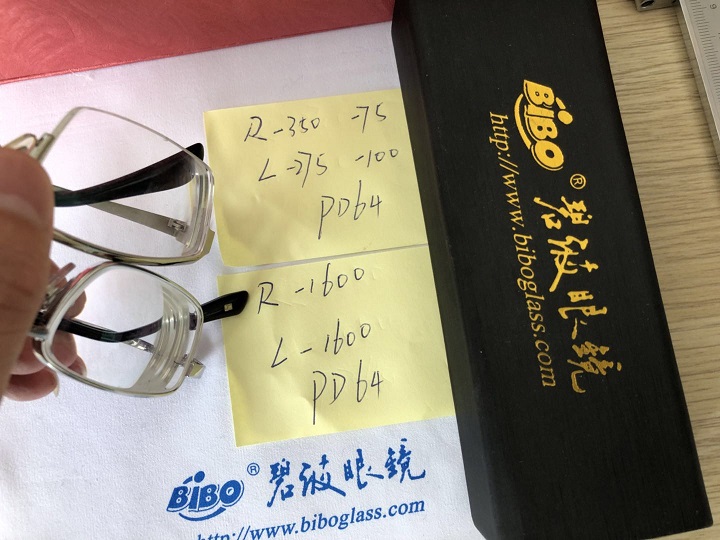 R -350 -75
L -275 -100
PD64
R -1600
L -1600
PD64
BIBO® 碧波眼镜
http://www.biboglass.com
BIBO® 碧波眼镜
http://www.biboglass.com